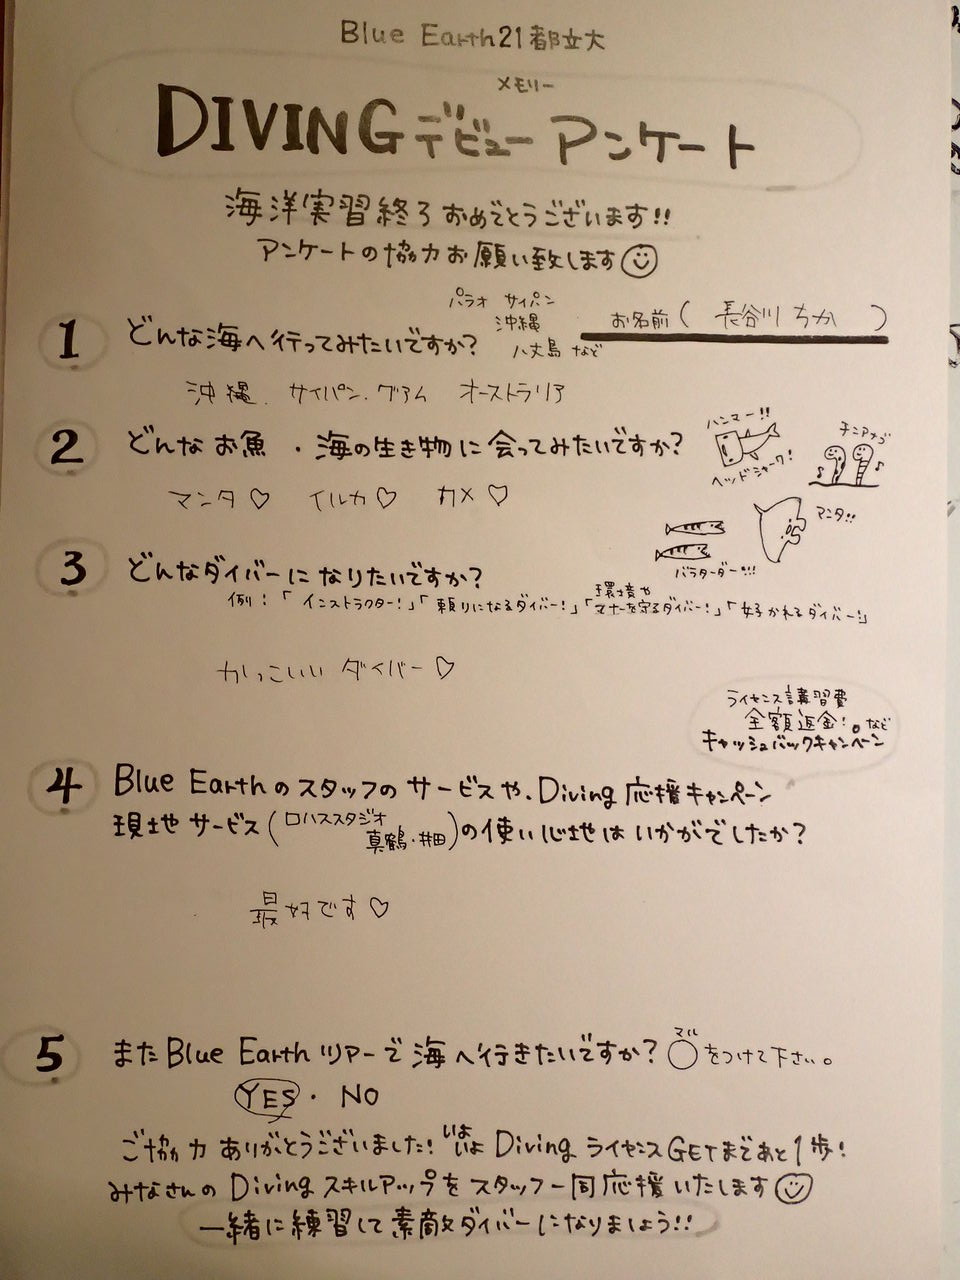 Blue Earth21都立大
メモリー
DIVINGデビューアンケート
海洋実習終了おめでとうございます!!
アンケートの協力お願い致します
パラオ サイパン
沖縄
八丈島 など
お名前( 長谷川 ちか )
1 どんな海へ行ってみたいですか?
沖縄. サイパン. グアム オーストラリア
2 どんなお魚・海の生き物に会ってみたいですか?
ハンマー!!
ヘッドシャーク!
チンアナゴ
マンタ♡ イルカ♡ カメ♡
マンタ!!
バラクーダー!!!
3 どんなダイバーになりたいですか?
例:「インストラクター!」「頼りになるダイバー!」「環境やマナーを守るダイバー!」「好かれるダイバー!」
かっこいい ダイバー♡
ライセンス講習費
全額返金!。など
キャッシュバックキャンペーン
4 Blue Earthのスタッフのサービスや、Diving応援キャンペーン
現地サービス(ロハススタジオ
真鶴・井田)の使い心地はいかがでしたか?
最好です♡
5 またBlue Earthツアーで海へ行きたいですか? ○をつけて下さい。
マル
YES・NO
ご協力ありがとうございました!いよいよDivingライセンスGETまであと1歩!
みなさんのDivingスキルアップをスタッフ一同応援いたします
一緒に練習して素敵ダイバーになりましょう!!